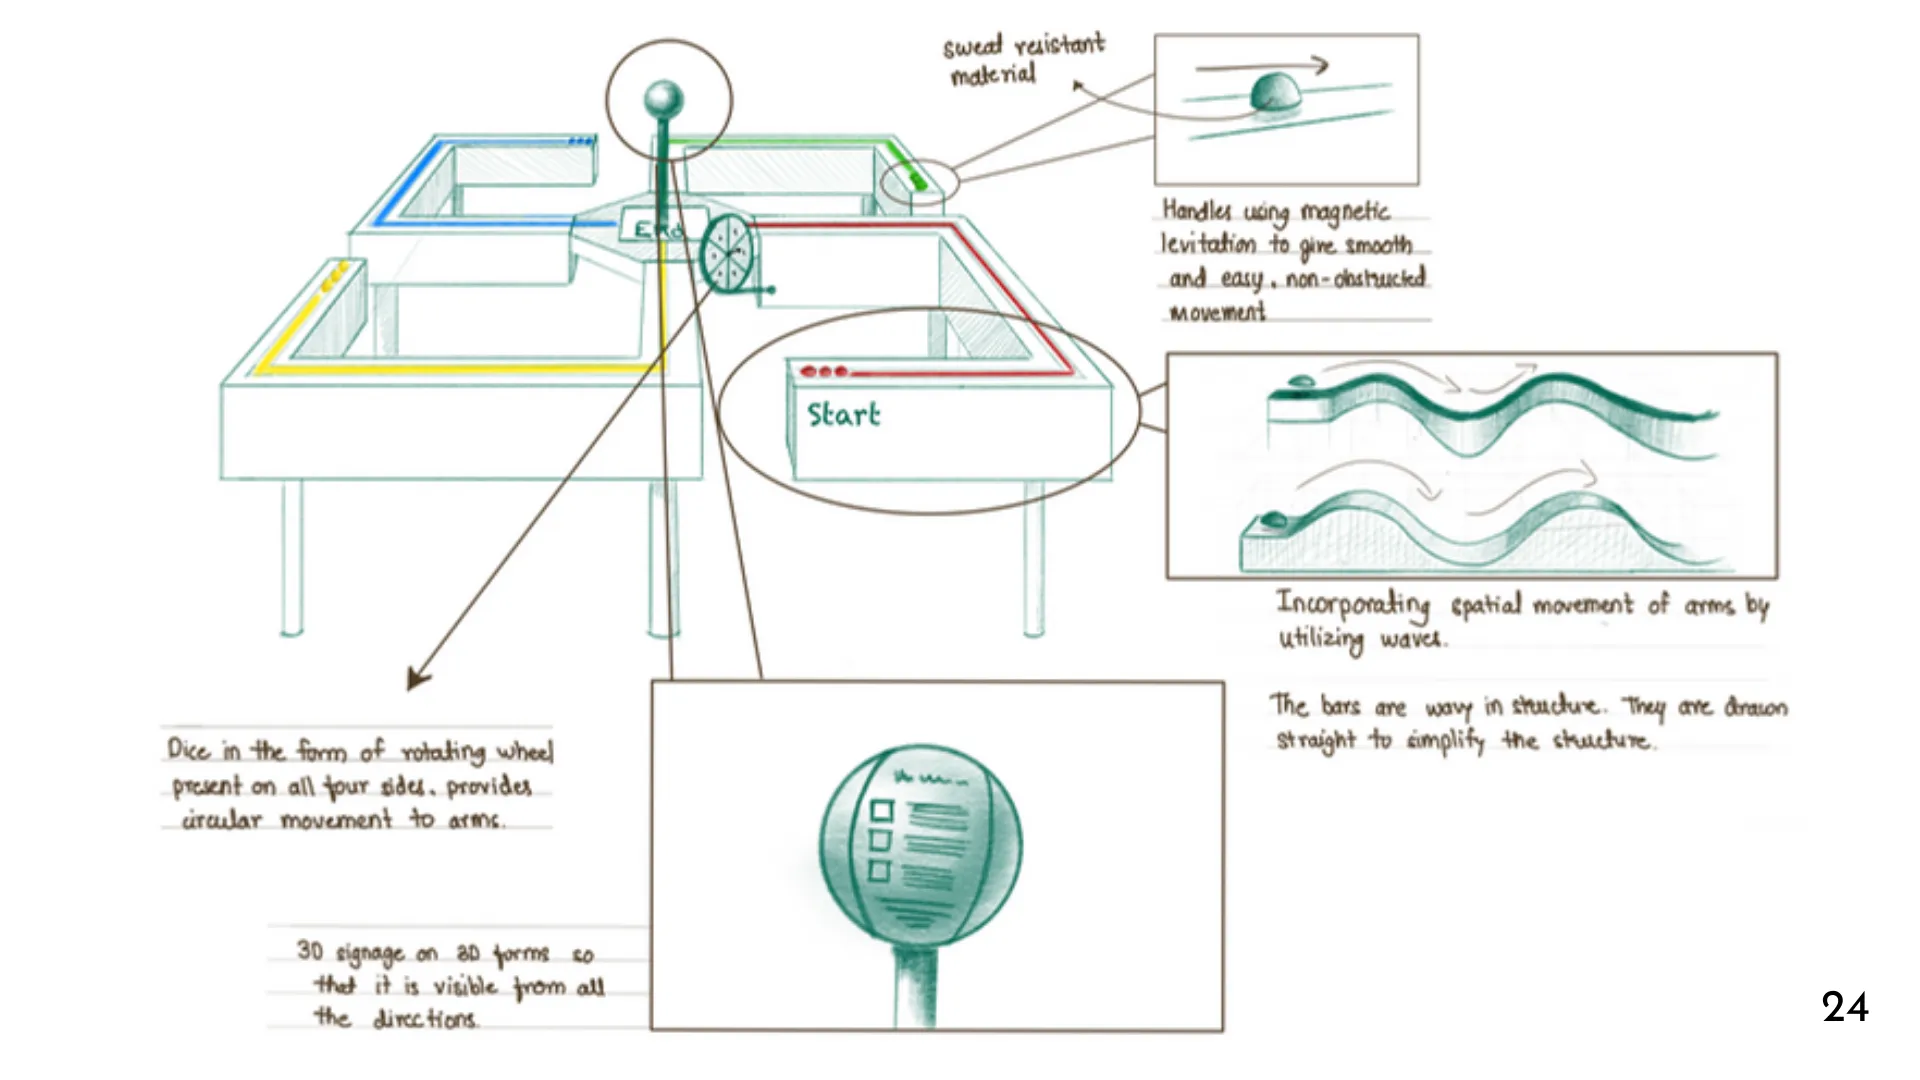 sweat resistant
material
Handles using magnetic
levitation to give smooth
and easy, non-obstructed
movement
End
Start
Incorporating spatial movement of arms by
utilizing waves.
The bars are wavy in structure. They are drawn
straight to simplify the structure.
Dice in the form of rotating wheel
present on all four sides, provides
circular movement to arms.
3D signage on 3D forms so
that it is visible from all
the directions.
24